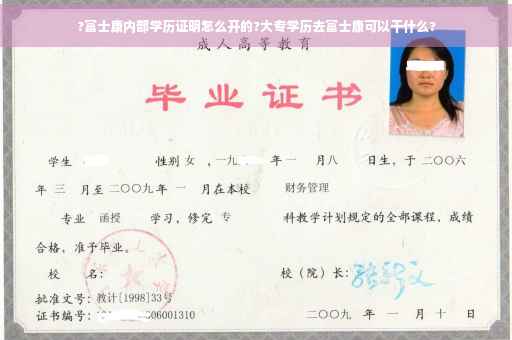 ?富士康内部学历证明怎么开的?大专学历去富士康可以干什么?
成人高等教育
毕业证书
学生 性别 女 ,一九 年一 月八 日生,于二〇〇六
年 三 月至二〇〇九年 一 月在本校 财务管理
专业 函授 学习,修完 专 科教学计划规定的全部课程,成绩
合格,准予毕业。
校 名: 校(院)长:
批准文号:教计[1998]33号
证书编号: 6001310 二〇〇九 年 一 月 十 日